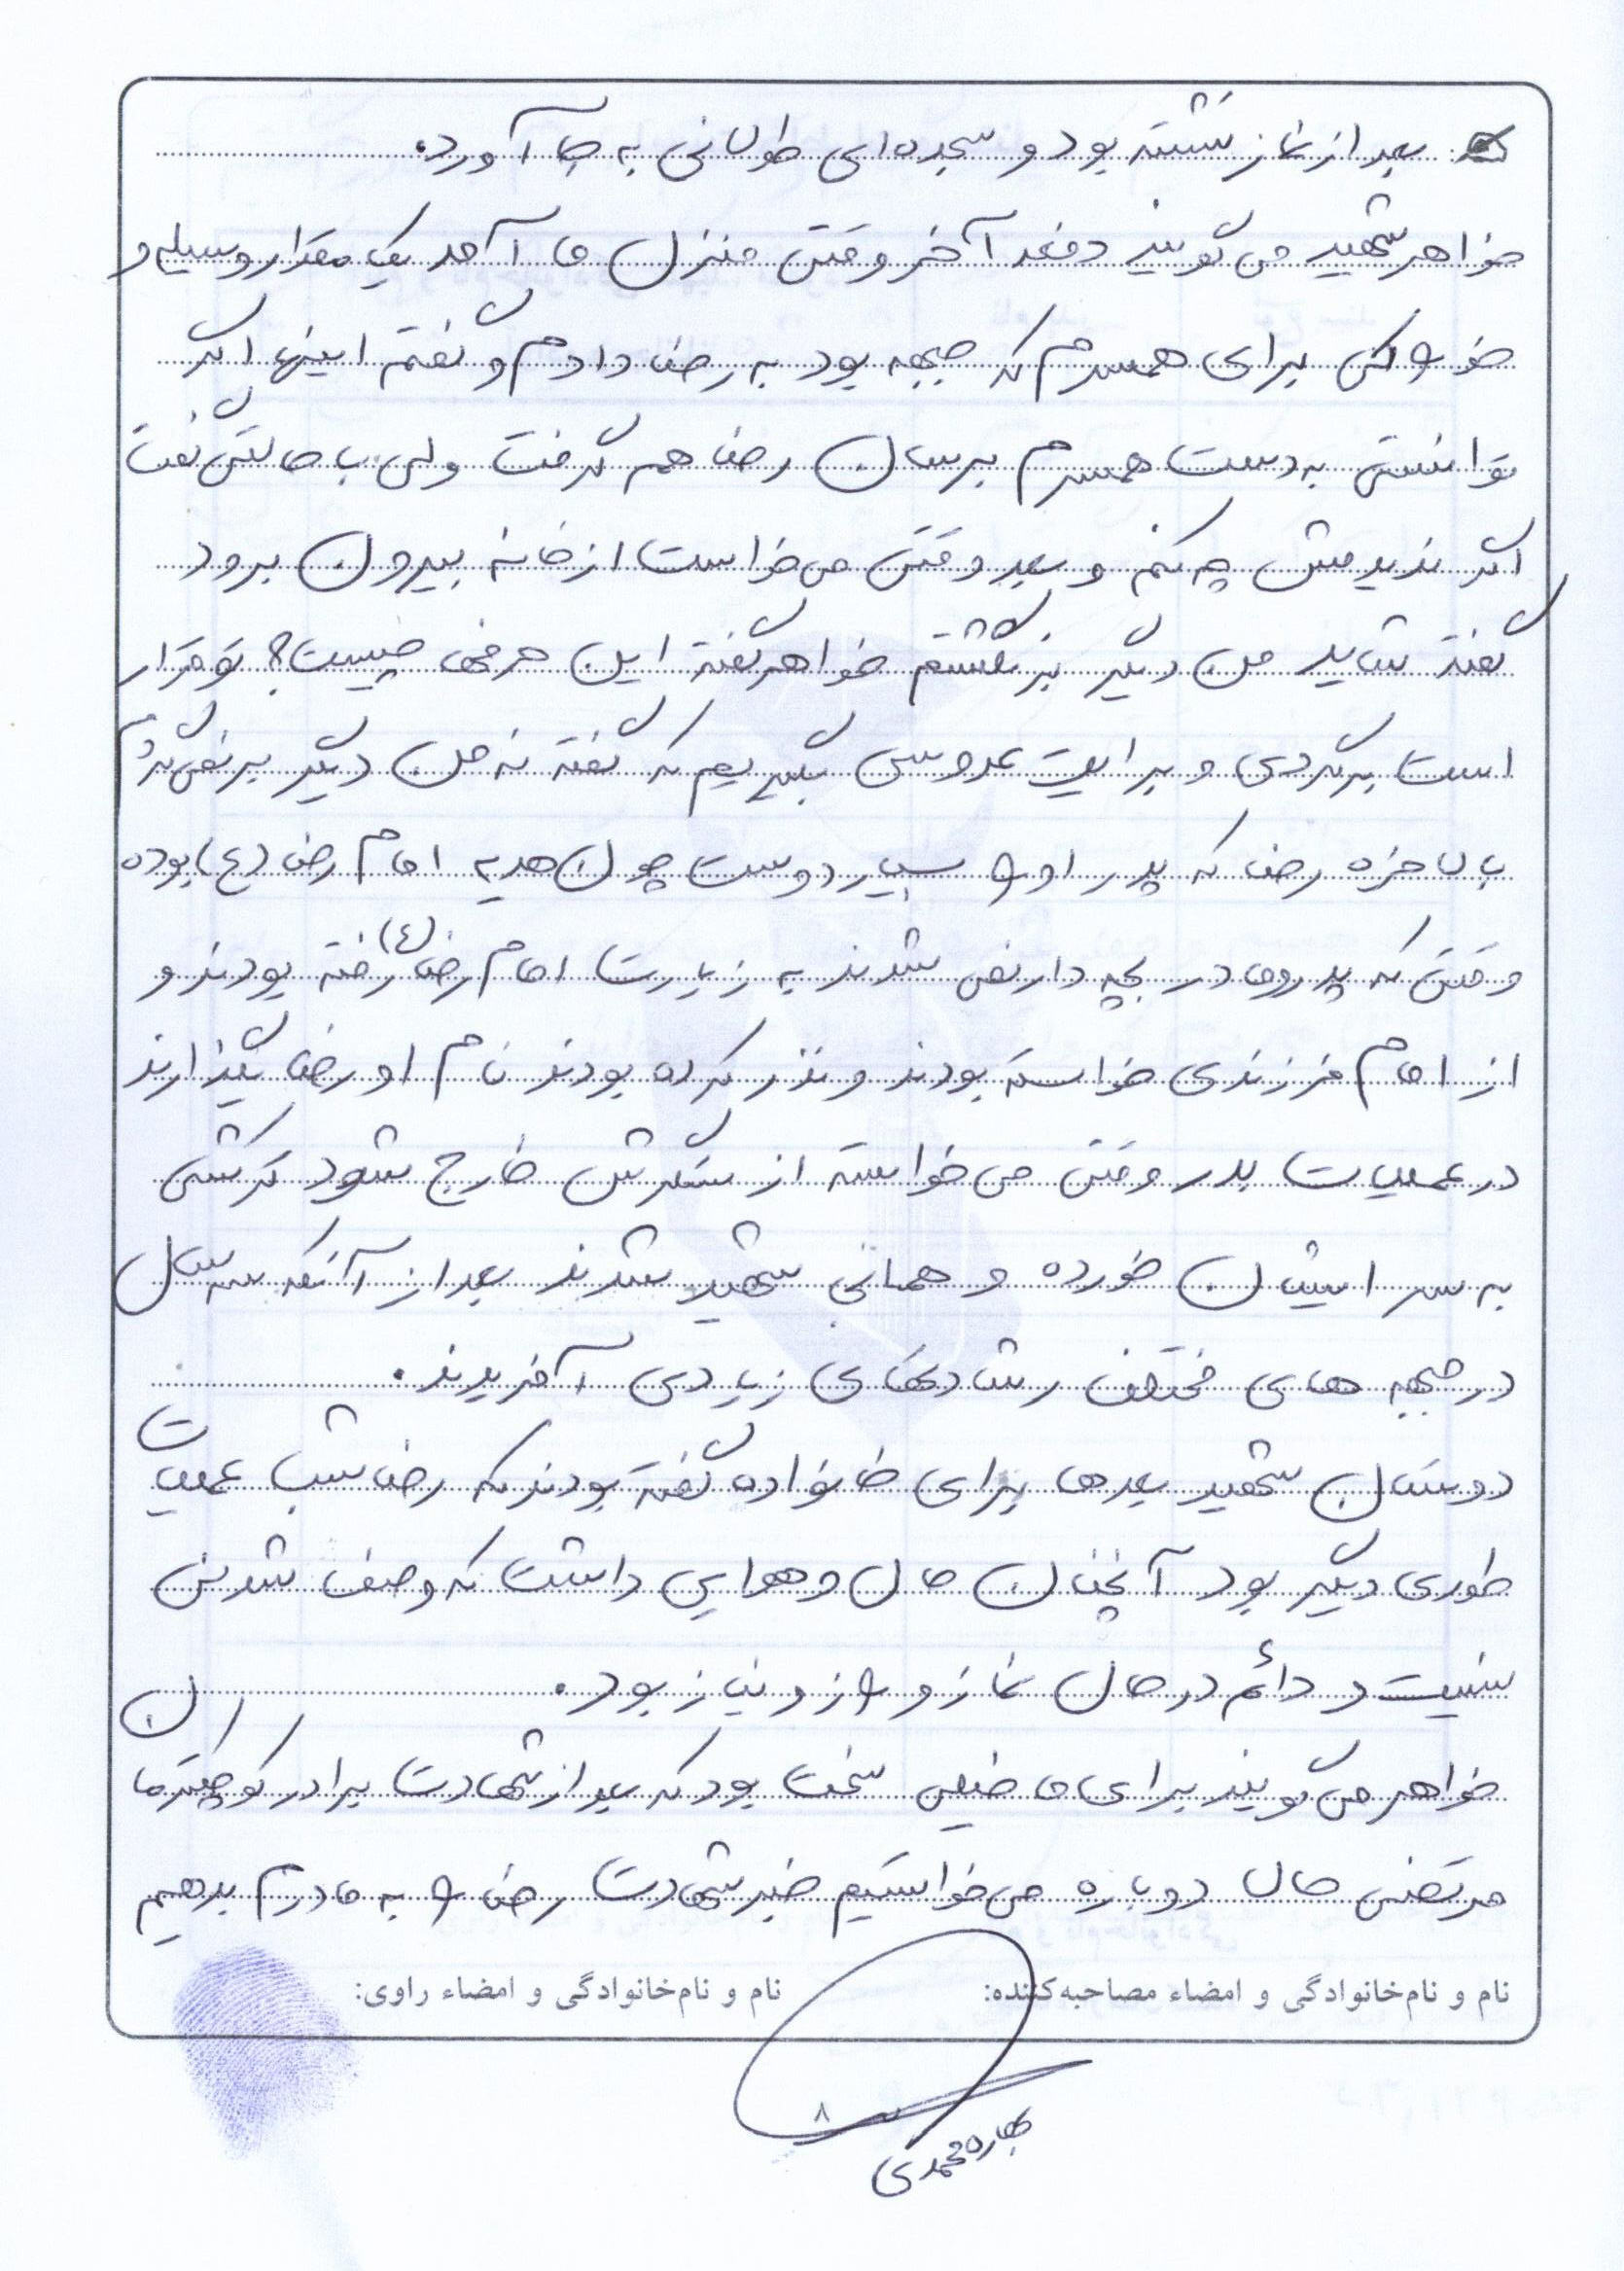 بعد از نماز نشسته بود و سجده‌ای طولانی به جا آورد.
خواهر شهید می گویند دفعه آخر وقتی منزل ما آمد یک مقدار وسیله و
خوراکی برای همسرم که جبهه بود به رضا دادم و گفتم اینها اگر
توانستی به دست همسرم برسان رضا هم گرفت ولی با حالتی گفت
اگر ندیدمش چه کنم و بعد وقتی می خواست از خانه بیرون برود
گفته شاید من دیگر برنگشتم خواهر گفته این حرفها چیست؟ تو قرار
است برگردی و برایت عروسی بگیریم که گفته نه من دیگر برنمی گردم
بالاخره رضا که پدر او را بسیار دوست چون هدیه امام رضا (ع) بوده
وقتی که پدر و مادر بچه دار نمی شدند به زیارت امام رضا (ع) رفته بودند و
از امام فرزندی خواسته بودند و نذر کرده بودند نام او رضا بگذارند
در عملیات بدر وقتی می خواسته از سنگرش خارج شود ترکشی
به سر ایشان خورده و همانجا شهید شدند بعد از آنکه سه سال
در جبهه های مختلف رشادتهای زیادی آفریدند.
دوستان شهید بعدها برای خانواده گفته بودند که رضا شب عملیات
طوری دیگر بود آنچنان حال و هوایی داشت که وصف شدنی
نیست و دائم در حال نماز و راز و نیاز بود.
خواهر می گویند برای ما خیلی سخت بود که بعد از شهادت برادر کوچکترمان
مرتضی حالا دوباره می خواستیم خبر شهادت رضا را به مادرم بدهیم
نام و نام‌خانوادگی و امضاء مصاحبه‌کننده: نام و نام‌خانوادگی و امضاء راوی:
۸
بهاره محمدی